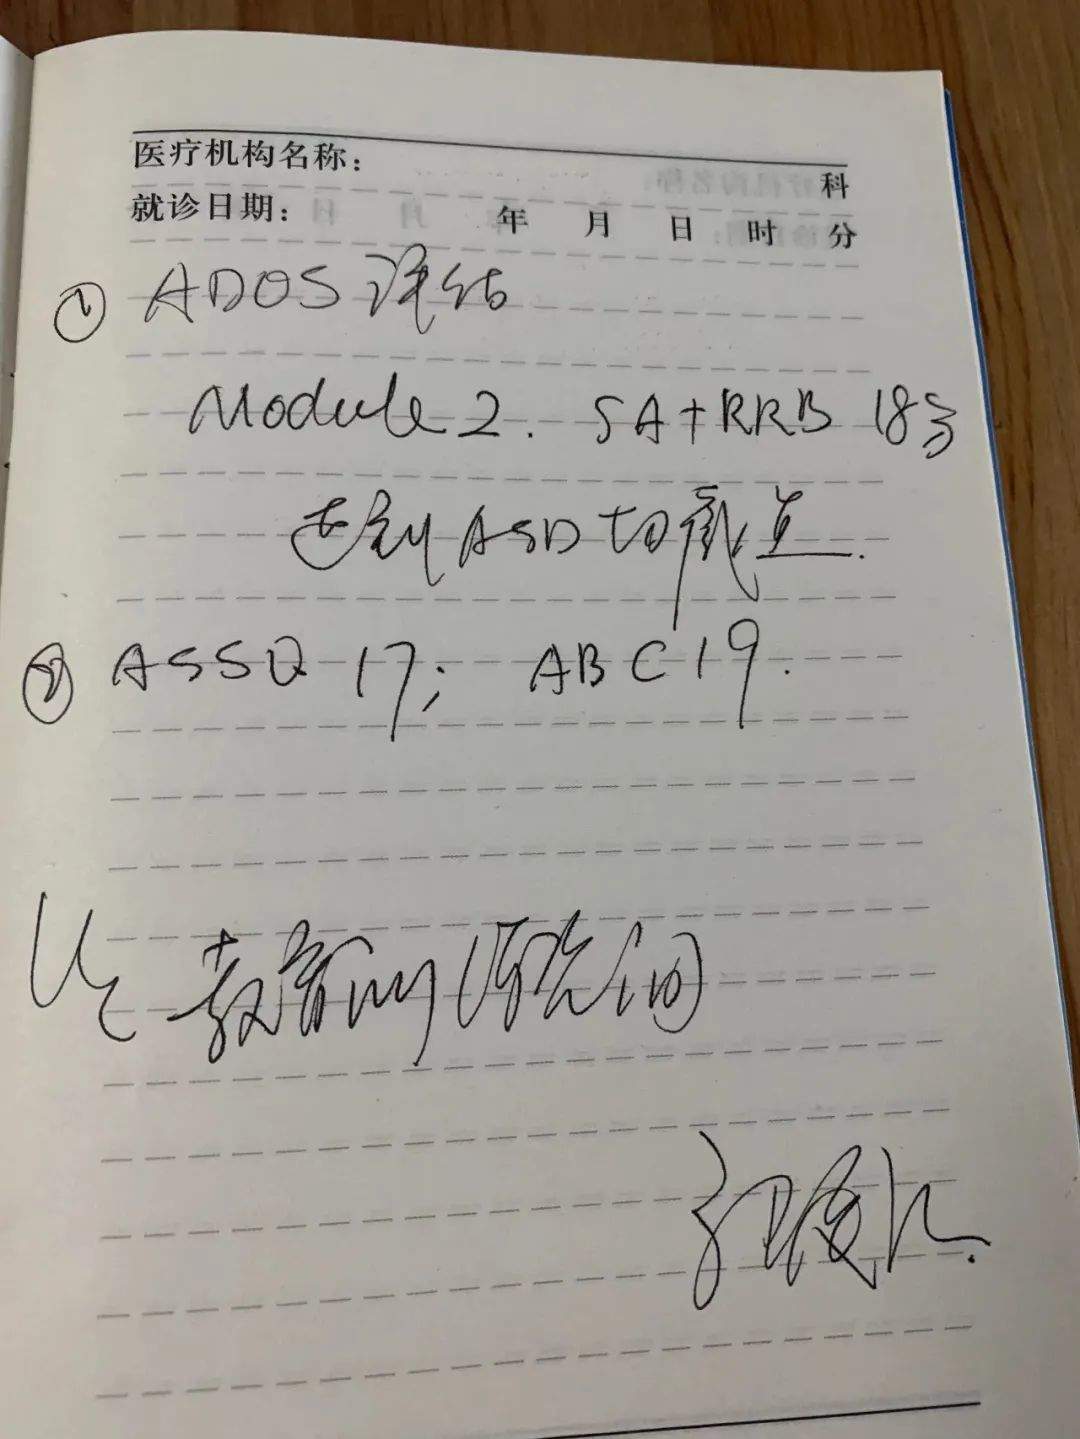 医疗机构名称： 科
就诊日期： 年 月 日 时 分
① ADOS 评估
Module 2. SA+RRB 18分
达到 ASD 切截点.
② ASSQ 17; ABC 19.
教育训